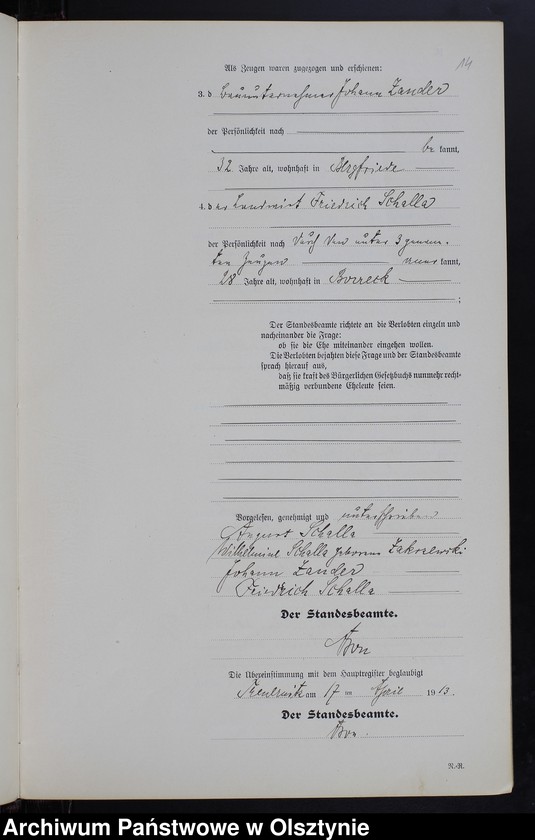 14
Als Zeugen waren zugezogen und erschienen:
3. d Bauunternehmer Johann Zander
der Persönlichkeit nach
be kannt,
32 Jahre alt, wohnhaft in Bergfriede
4. der Landwirt Friedrich Schalla
der Persönlichkeit nach durch den unter 3 genann-
ten Zeugen kannt,
28 Jahre alt, wohnhaft in
;
Der Standesbeamte richtete an die Verlobten einzeln und
nacheinander die Frage:
ob sie die Ehe miteinander eingehen wollen.
Die Verlobten bejahten diese Frage und der Standesbeamte
sprach hierauf aus,
daß sie kraft des Bürgerlichen Gesetzbuchs nunmehr recht-
mäßig verbundene Eheleute seien.
Vorgelesen, genehmigt und unterschrieben
August Schalla
Wilhelmine Schalla geborene Zakrzewski
Johann Zander
Friedrich Schalla
Der Standesbeamte.
Die Übereinstimmung mit dem Hauptregister beglaubigt
am 17 ten April 1913.
Der Standesbeamte.
R.-R.
Archiwum Państwowe w Olsztynie